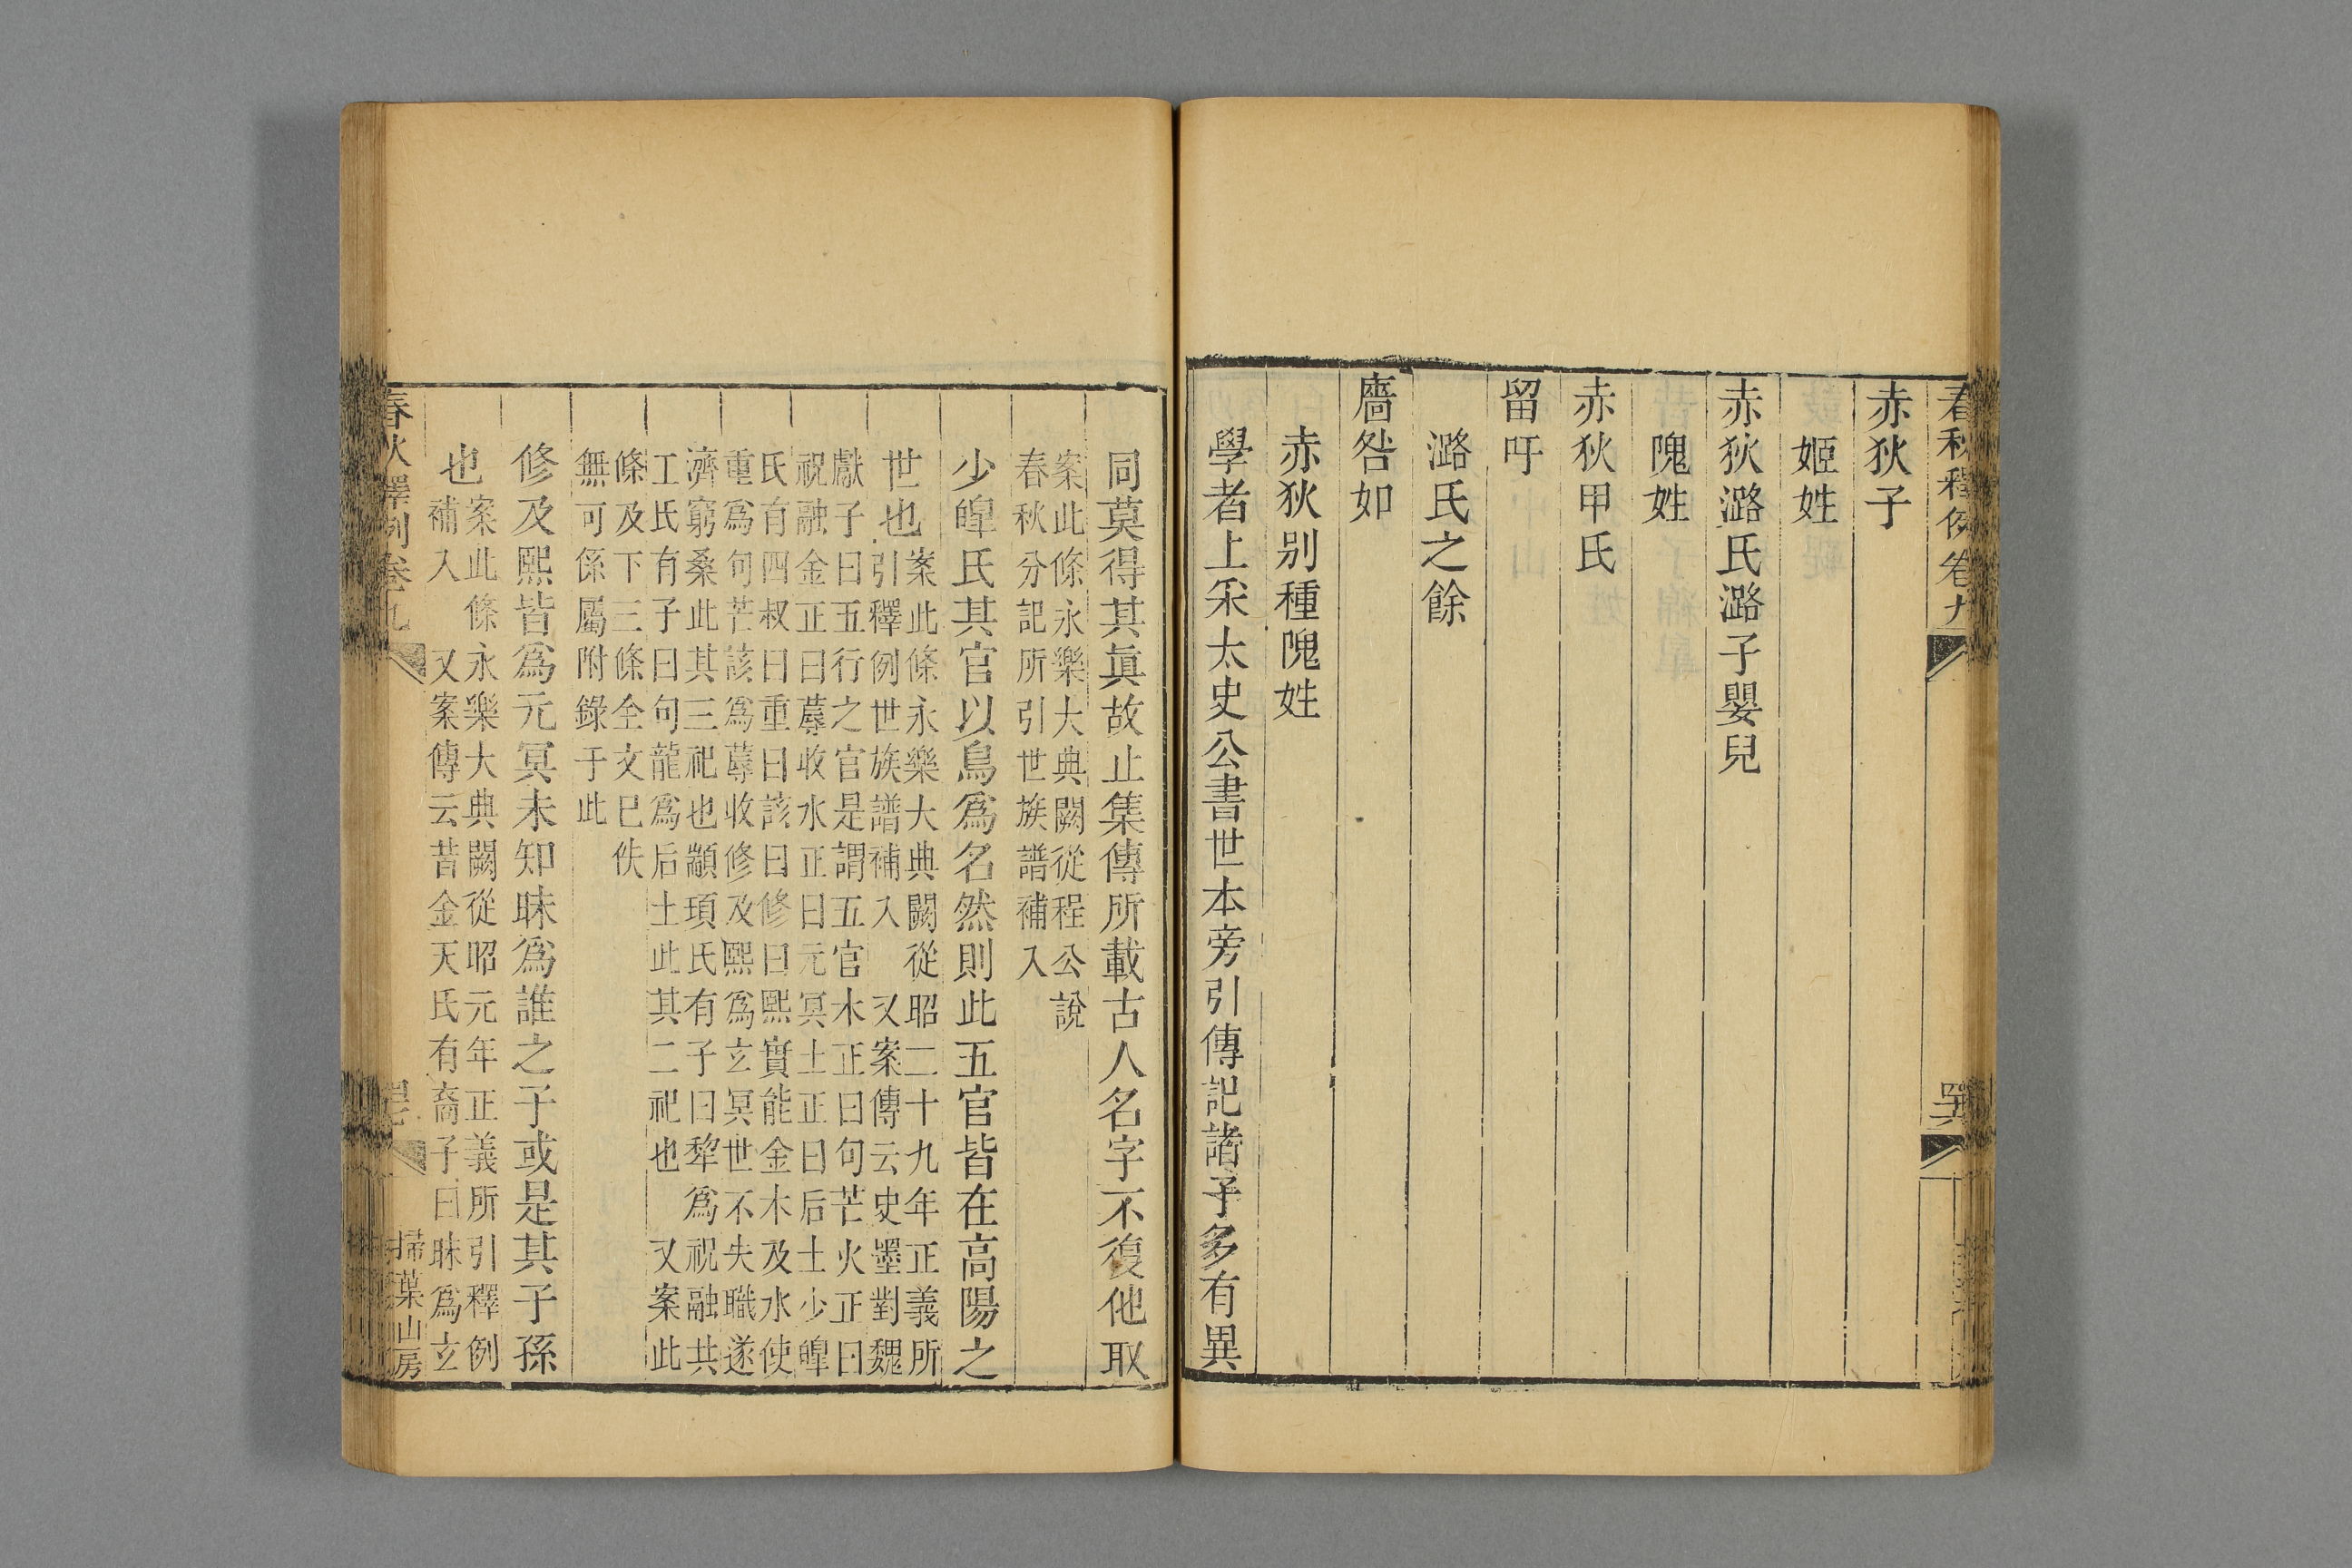 春秋釋例卷九
赤狄子
姬姓
赤狄潞氏潞子嬰兒
隗姓
赤狄甲氏
留吁
潞氏之餘
廧咎如
赤狄別種隗姓
學者上采太史公書世本旁引傳記諸子多有異
同莫得其眞故止集傳所載古人名字不復他取
案此條永樂大典闕從程公說
春秋分記所引世族譜補入
少皥氏其官以鳥爲名然則此五官皆在高陽之
世也案此條永樂大典闕從昭二十九年正義所
引釋例世族譜補入 又案傳云史墨對魏
獻子曰五行之官是謂五官木正曰句芒火正曰
祝融金正曰蓐收水正曰元冥土正曰后土少皥
氏有四叔曰重曰該曰修曰熙實能金木及水使
重爲句芒該爲蓐收修及熙爲玄冥世不失職遂
濟窮桑此其三祀也顓頊氏有子曰犂爲祝融共
工氏有子曰句龍爲后土此其二祀也 又案此
條及下三條全文已佚
無可係屬附錄于此
修及熙皆爲元冥未知昧爲誰之子或是其子孫
也案此條永樂大典闕從昭元年正義所引釋例
補入 又案傳云昔金天氏有裔子曰昧爲玄
春秋釋例卷九
掃葉山房